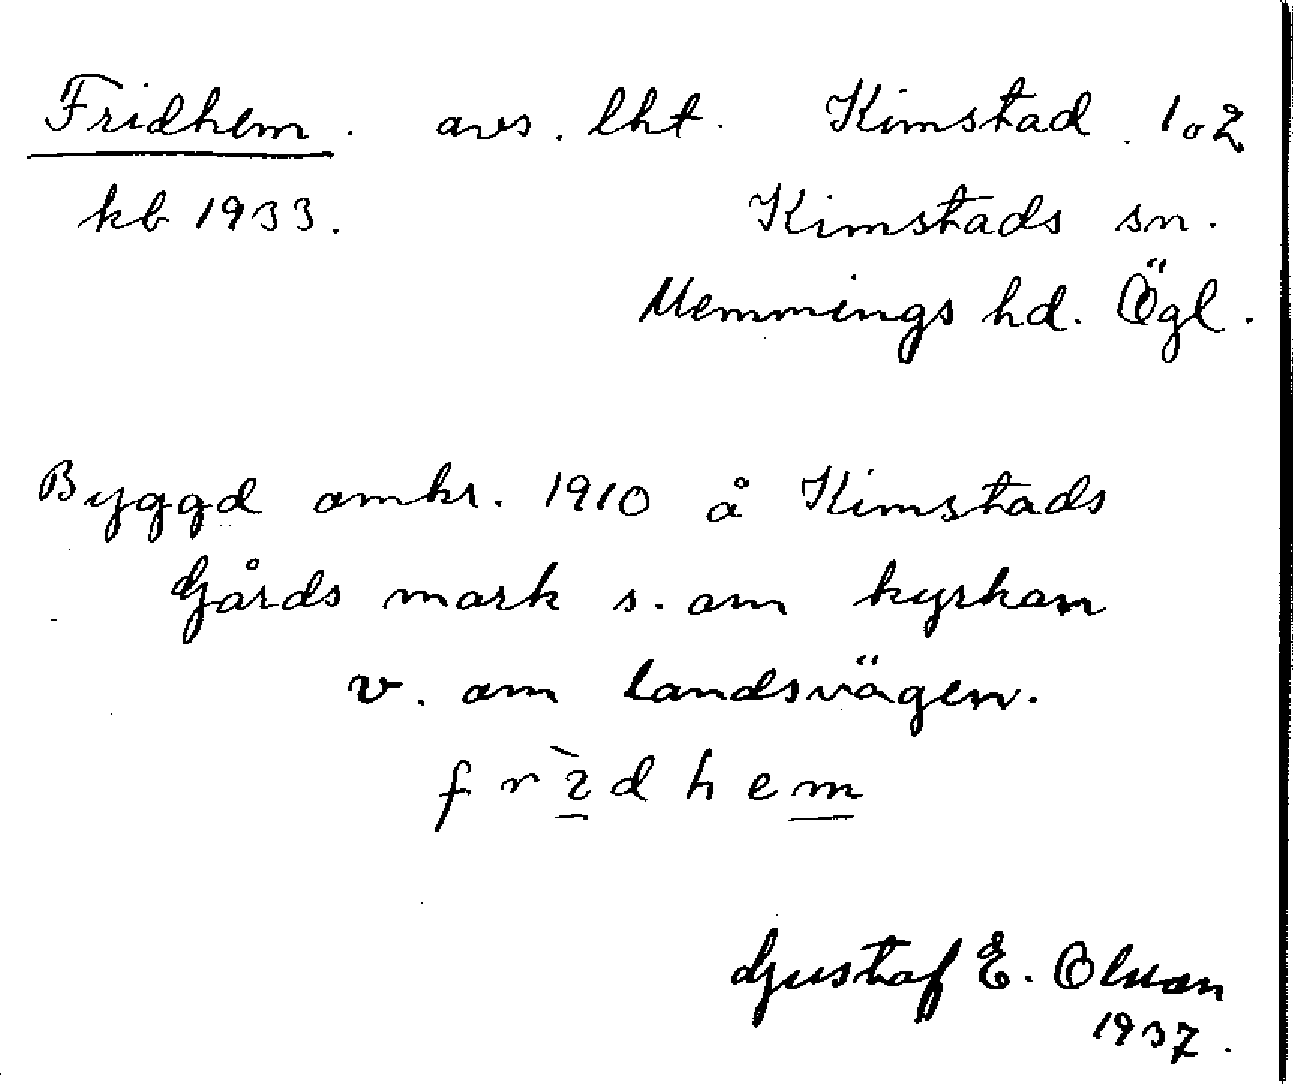 Fridhem. avs. lht. Kimstad 1 o 2
kb 1933. Kimstads sn.
Memmings hd. Ögl.
Byggd omkr. 1910 å Kimstads
Gårds mark s. om kyrkan
v. om landsvägen.
frìdhem
Gustaf E. Olsson
1937.